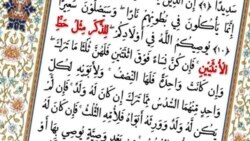 سَدِيدًا ﴿٩﴾ إِنَّ الَّذِينَ
إِنَّمَا يَأْكُلُونَ فِي بُطُونِهِمْ نَارًا وَسَيَصْلَوْنَ سَعِيرًا
﴿١٠﴾ يُوصِيكُمُ اللَّهُ فِي أَوْلَادِكُمْ لِلذَّكَرِ مِثْلُ حَظِّ
الْأُنْثَيَيْنِ فَإِنْ كُنَّ نِسَاءً فَوْقَ اثْنَتَيْنِ فَلَهُنَّ ثُلُثَا مَا تَرَكَ
وَإِنْ كَانَتْ وَاحِدَةً فَلَهَا النِّصْفُ وَلِأَبَوَيْهِ لِكُلِّ
وَاحِدٍ مِنْهُمَا السُّدُسُ مِمَّا تَرَكَ إِنْ كَانَ لَهُ وَلَدٌ فَإِنْ لَمْ
يَكُنْ لَهُ وَلَدٌ وَوَرِثَهُ أَبَوَاهُ فَلِأُمِّهِ الثُّلُثُ فَإِنْ كَانَ لَهُ
بَعْدِ وَصِيَّةٍ يُوصِي بِهَا